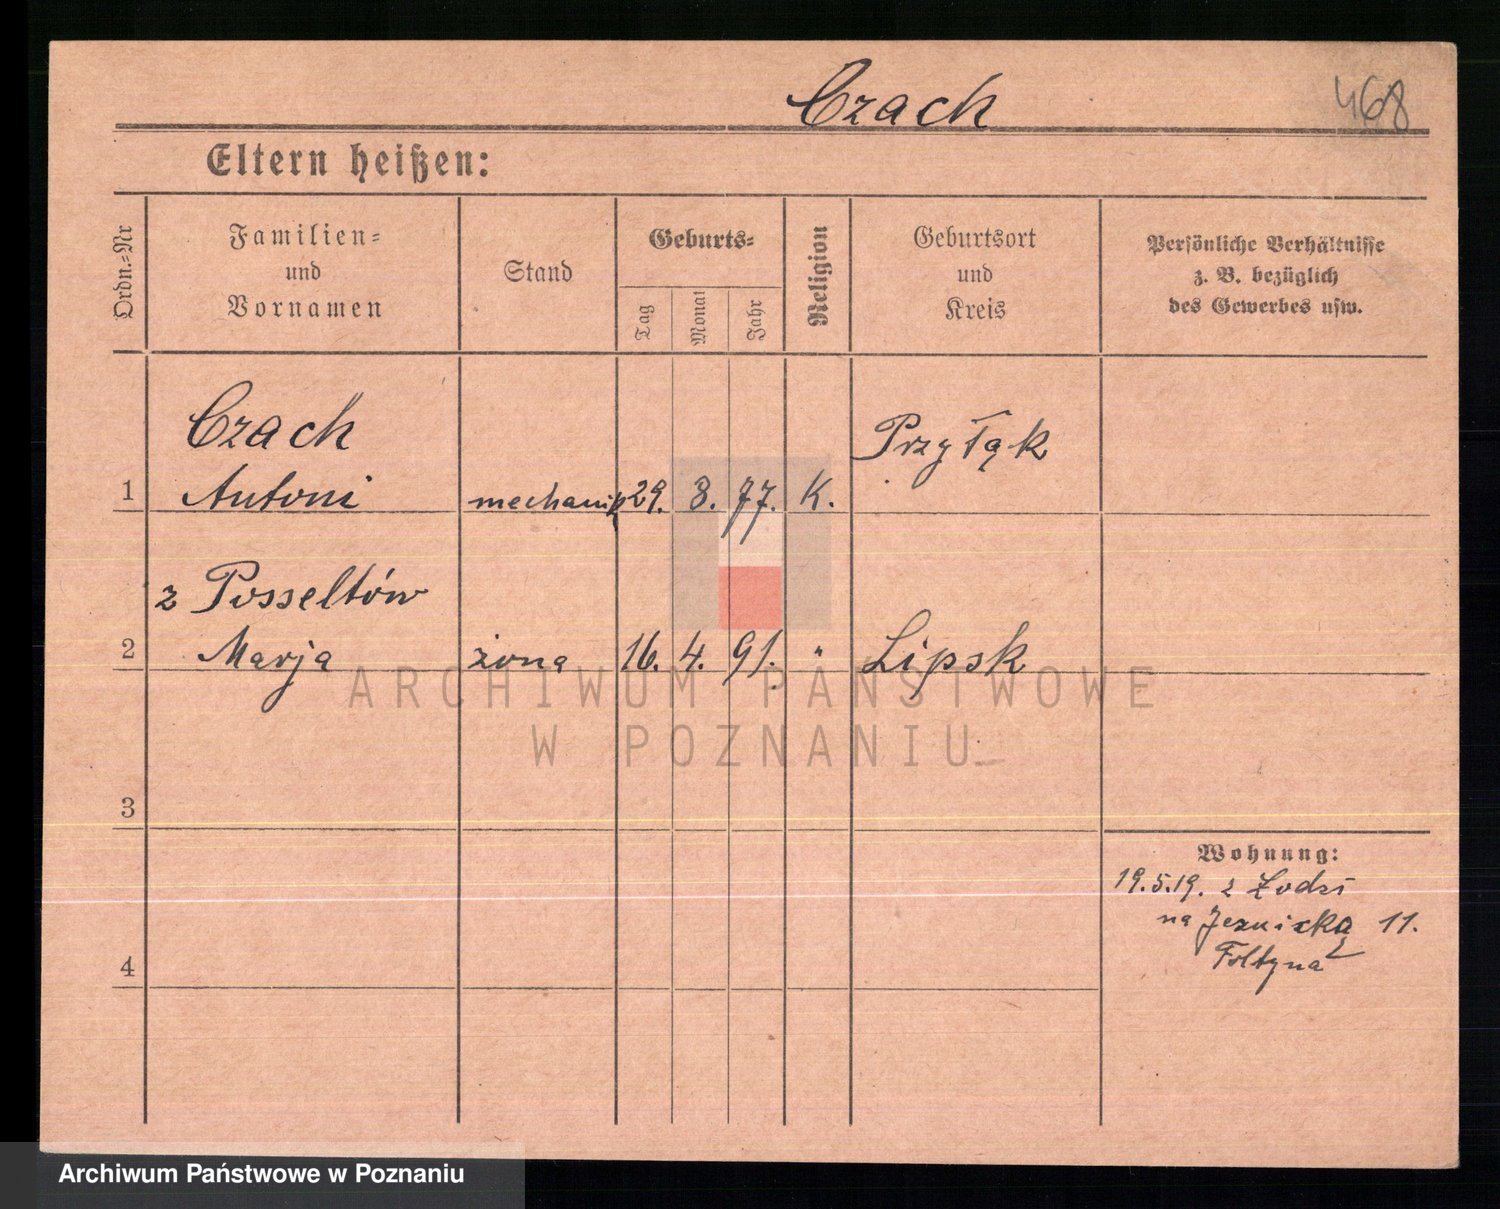 Czach 468
Eltern heißen:
Ordn.-Nr
Familien-
und
Vornamen
Stand
Geburts-
Tag
Monat
Jahr
Religion
Geburtsort
und
Kreis
Persönliche Verhältnisse
z. B. bezüglich
des Gewerbes usw.
Czach
1 Antoni mechanik 29. 3. 77. K. Przyłąk
z Posseltów
2 Marja żona 16. 4. 91. " Lipsk
ARCHIWUM PAŃSTWOWE
W POZNANIU
3
Wohnung:
19.5.19. z Łodzi
na Jezuicką 11.
Foltyna
4
Archiwum Państwowe w Poznaniu